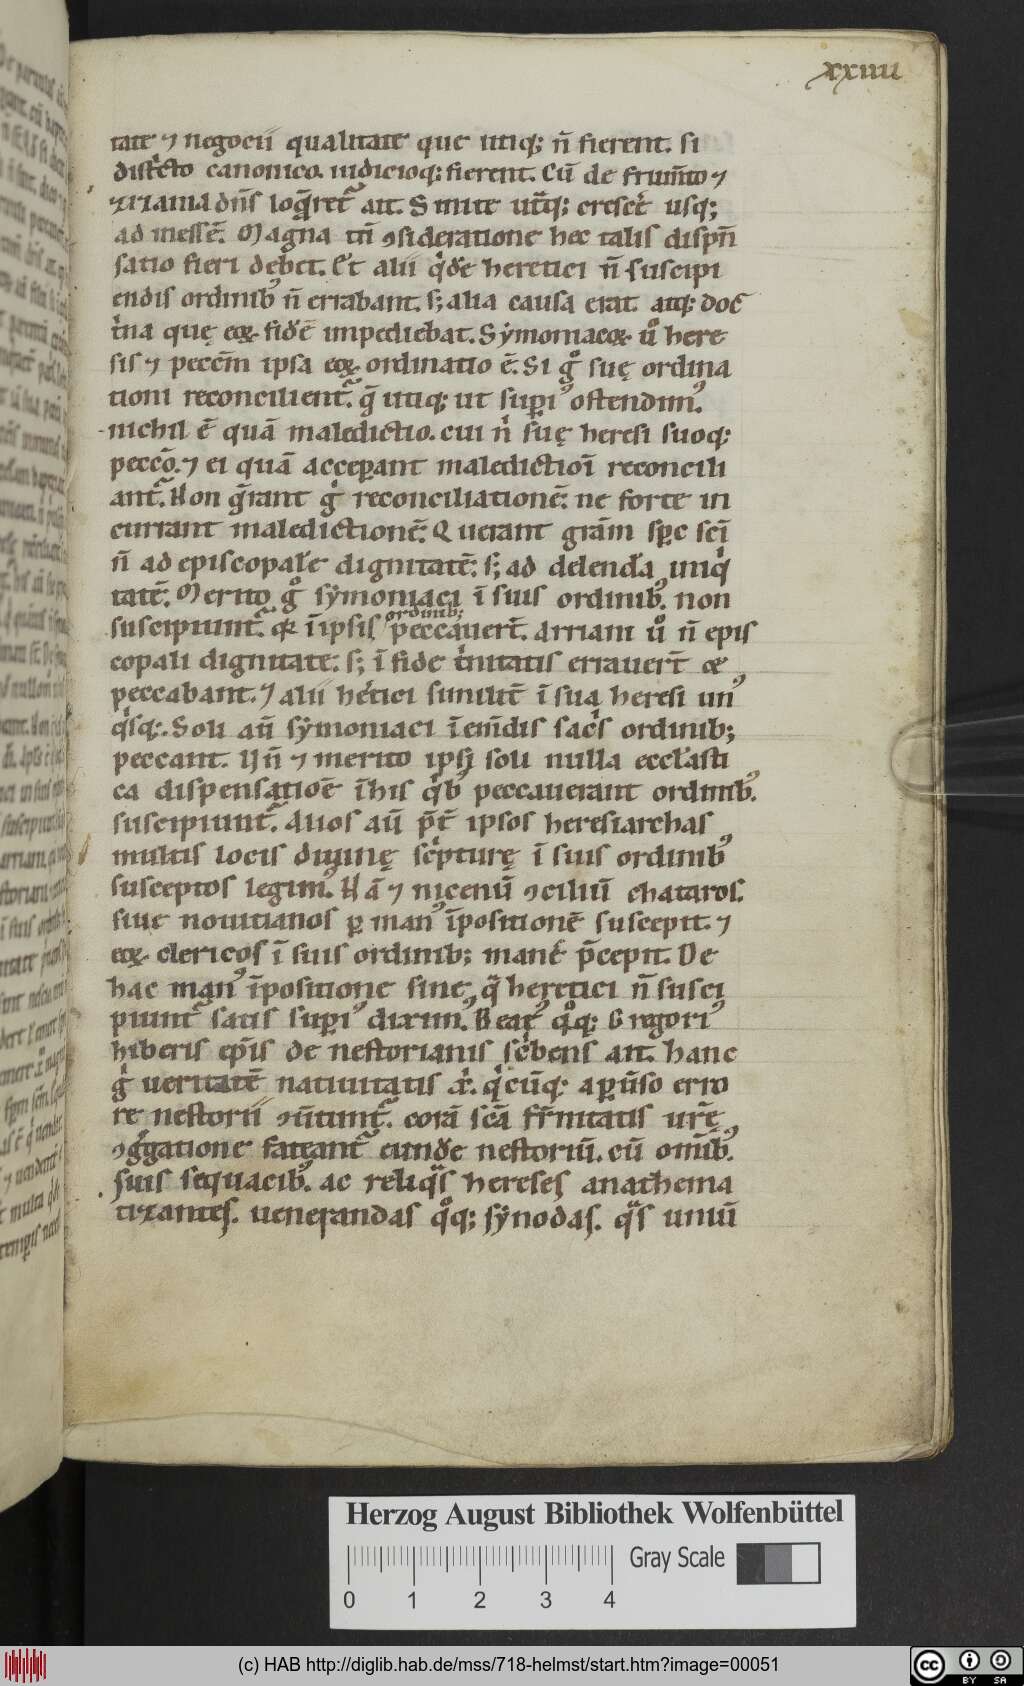 xxiiii
tate ⁊ negocii qualitate que utiq; n̄ fierent. si
districto canonico. iudicioq; fierent. Cū de frum̄to ⁊
zizania dn̄s loq̄ret᷑ ait. Sinite ut̄q; cresce᷑ usq;
ad messē. Magna tn̄ ꝯsideratione hec talis dispn̄
satio fieri debet. Et alii q̇dē heretici n̄ suscipi
endis ordinib᷒ n̄ errabant. s; alia causa erat. atq; doc
tͥna quę eoꝝ fidē impediebat. Sẏmoniacoꝝ ů here
sis ⁊ peccm̄ ipsa eoꝝ ordinatio ē. Si g̊ suę ordina
tioni reconcilient᷑. q̄ utiq; ut supi᷒ ostendim᷒.
nichil ē quā maledictio. cui n̄ suę heresi suoq;
peccō. ⁊ ei quā acceꝑant maledictioī reconcili
ant᷑. Non q̄rant gͥ reconciliationē. ne forte in
currant maledictionē. Querant grām spc scī
n̄ ad episcopalē dignitatē. s; ad delendā iniqͥ
tatē. Merito g̊ sẏmoniaci ī suis ordinib᷒. non
ordinib;
suscipiunt᷑. qꝛ ī ipsis peccauert̄. Arriani ů n̄ epis
copali dignitate. s; ī fide tͥnitatis errauert̄ ac
peccabant. ⁊ alii hētici similit̄ ī sua heresi un᷒
qͥsq;. Soli aū sẏmoniaci ī em̄dis sacͥs ordinib;
peccant. Hn̄ ⁊ merito ipsi soli nulla eccłasti
ca dispensatiōe ī his qͥb᷒ peccauerant ordinib᷒.
suscipiunt᷑. Alios aū p̄t̄ ipsos heresiarchas
multis locis diuinę scͥpturę ī suis ordinib᷒
susceptos legim᷒. Nā ⁊ nicenū ꝯciliū chataros.
siue nouitianos ꝑ man᷒ īpositionē suscepit. ⁊
eoꝝ clericos ī suis ordinib; manē p̄cepit. De
hac man᷒ īpositione sine q̄ heretici n̄ susci
piunt᷑ satis supi᷒ dixim᷒. Beat᷒ q̊q; Gregori᷒
hiberis ep̄is de nestorianis scͥbens ait. hanc
gͥ ueritatē natiuitatis x̄. qͥcūq; a ꝑuſo erro
re nestorii ꝯūtunt᷑. corā scā fr̄nitatis ur̄ę
ꝯgͣgatione fateant᷑ eundē nestoriū. cū om̄ib᷒.
suis sequacib᷒. ac reliqͣs hereses anathema
tizantes. uenerandas q̊q; sẏnodas. qͣs uniū
Herzog August Bibliothek Wolfenbüttel
Gray Scale
0 1 2 3 4
(c) HAB http://diglib.hab.de/mss/718-helmst/start.htm?image=00051
cc BY SA